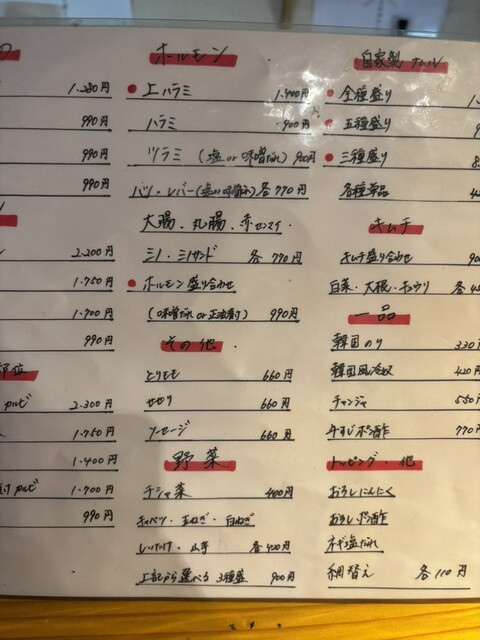 1.280円
990円
990円
990円
2.200円
1.750円
1.700円
990円
部位
カルビ 2.300円
1.750円
1.400円
カルビ 1.700円
990円
ホルモン
上ハラミ 1.400円
ハラミ 900円
ツラミ (塩 or 味噌だれ) 900円
ハツ・レバー (塩 or 味噌だれ) 各770円
大腸、丸腸、赤センマイ、
ミノ・ミノサンド 各 770円
ホルモン盛り合わせ
(味噌だれ or 正油漬け) 990円
その他
とりもも 660円
せせり 660円
ソーセージ 660円
野菜
チシャ菜 400円
キャベツ・玉ねぎ・白ねぎ
しいたけ・山芋 各420円
上記から選べる 3種盛 900円
自家製 ナムル
全種盛り
五種盛り
三種盛り
各種単品
キムチ
キムチ盛り合わせ
白菜・大根・キュウリ 各
一品
韓国のり 330円
韓国風冷奴 420円
チャンジャ 550円
牛すじポン酢 770円
トッピング・他
おろしにんにく
おろしポン酢
ネギ塩だれ
網替え 各110円